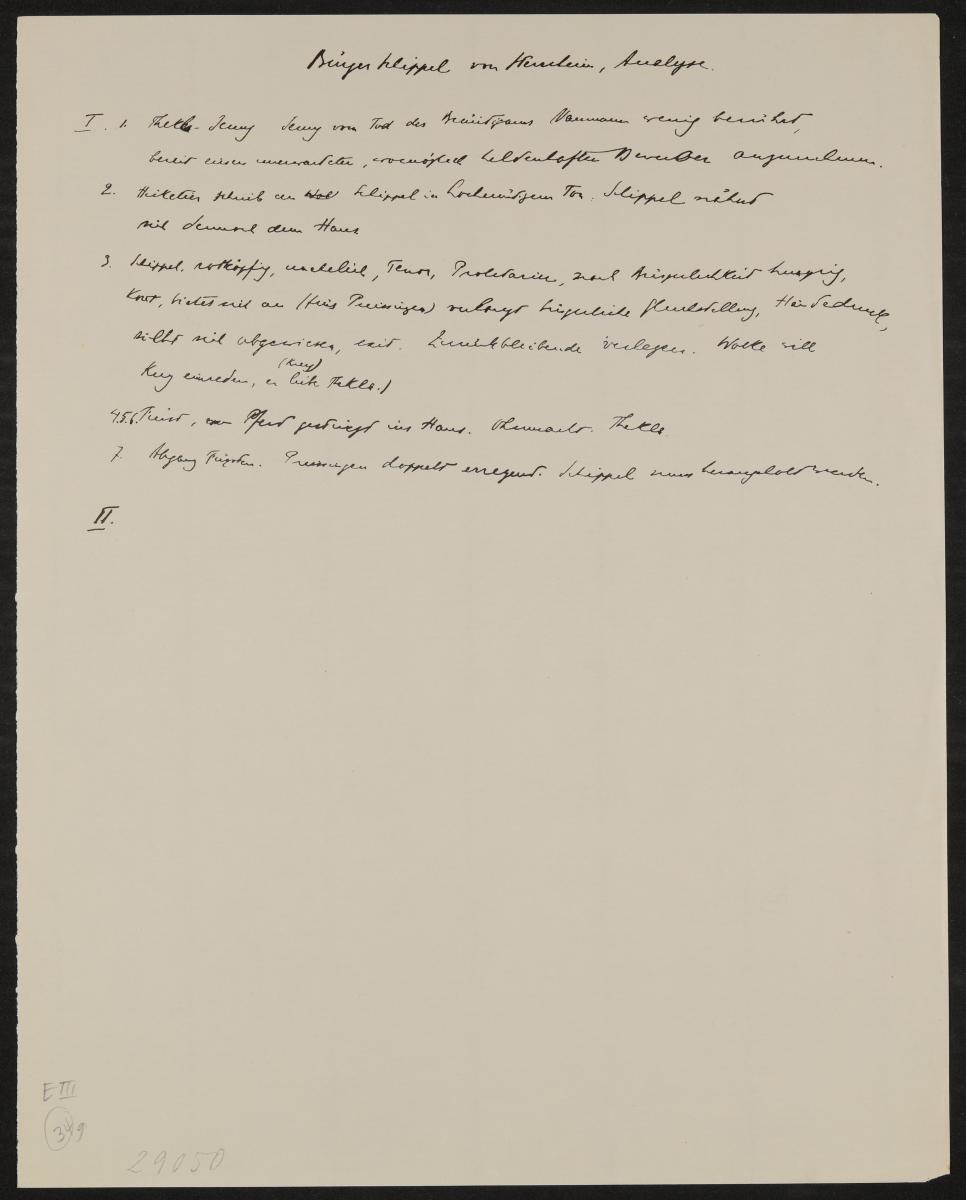 Bürger Schippel von Sternheim, Analyse.
I. 1. Thekla - Jenny Jenny vom Tod des Bräutigams Naumann wenig berührt,
bereit einen unerwarteten, womöglich heldenhaften Bewerber anzunehmen.
2. Hicketier schrieb an Schippel in hochmütigem Ton. Schippel nähert
sich dennoch dem Haus
3. Schippel, rotköpfig, unehelich, Tenor, Proletarier, nach Bürgerlichkeit hungrig,
bietet sich an (fürs Preissingen) verlangt bürgerliche Gleichstellung, Händedruck,
sieht sich abgewiesen, exit. Zurückbleibende verlegen. Wolke will
Krey einreden, er (Krey) liebe Thekla.)
4.5.6. Fürst, vom Pferd gestürzt ins Haus. Ohnmacht. Thekla
7. Abgang Fürsten. Preissingen doppelt erregend. Schippel muss herangeholt werden.
II.
E III
349
29050